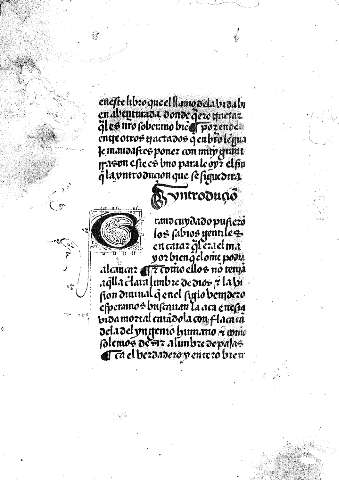 eneste libro que el llamo dela vida bi
en abenturada. donde q̃ero tractar
q̃l es ñro soberano biẽ ¶ por ende
entre otros tractados q̃ en b̃ro lẽgua
je mandastes poner con muy grant
rrason este es vno para le oyr el fin
q̃l a yntroducion que se sigue dira
yntroduciõ
Grand cuydado pusierõ
los sabios gentiles
en catar q̃l era el ma
yor bien q̃ el om̃e podia
alcançar ¶ τ como ellos no teniã
aq̃lla clara lunbre de dios τ la vi
sion diuinal q̃ en el siglo venidero
esperamos buscauan la aca en esta
vida mortal catãdo la con flaca cã
dela del yngenio humano τ como
solemos desir a lunbre de pajas
¶ Ca el verdadero y entero bien